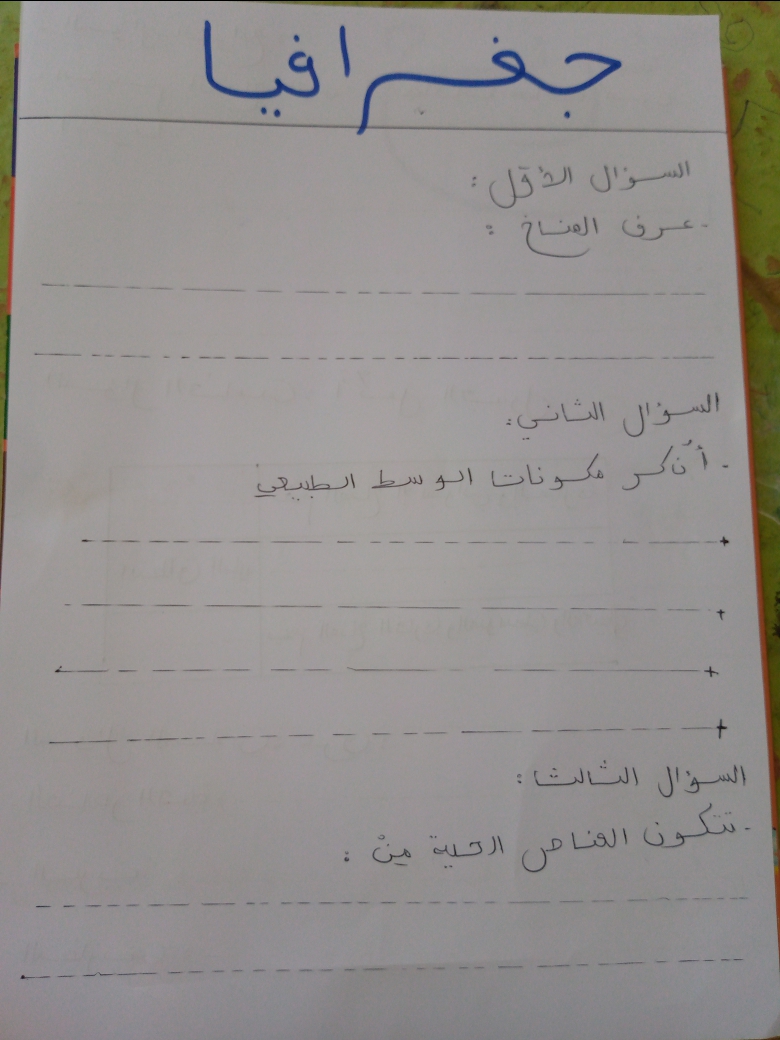 جغرافيا
السؤال الأول :
- عرف المناخ :
السؤال الثاني :
- أذكر مكونات الوسط الطبيعي
+
+
+
+
السؤال الثالث :
- تتكون العناصر الحية مِنْ :